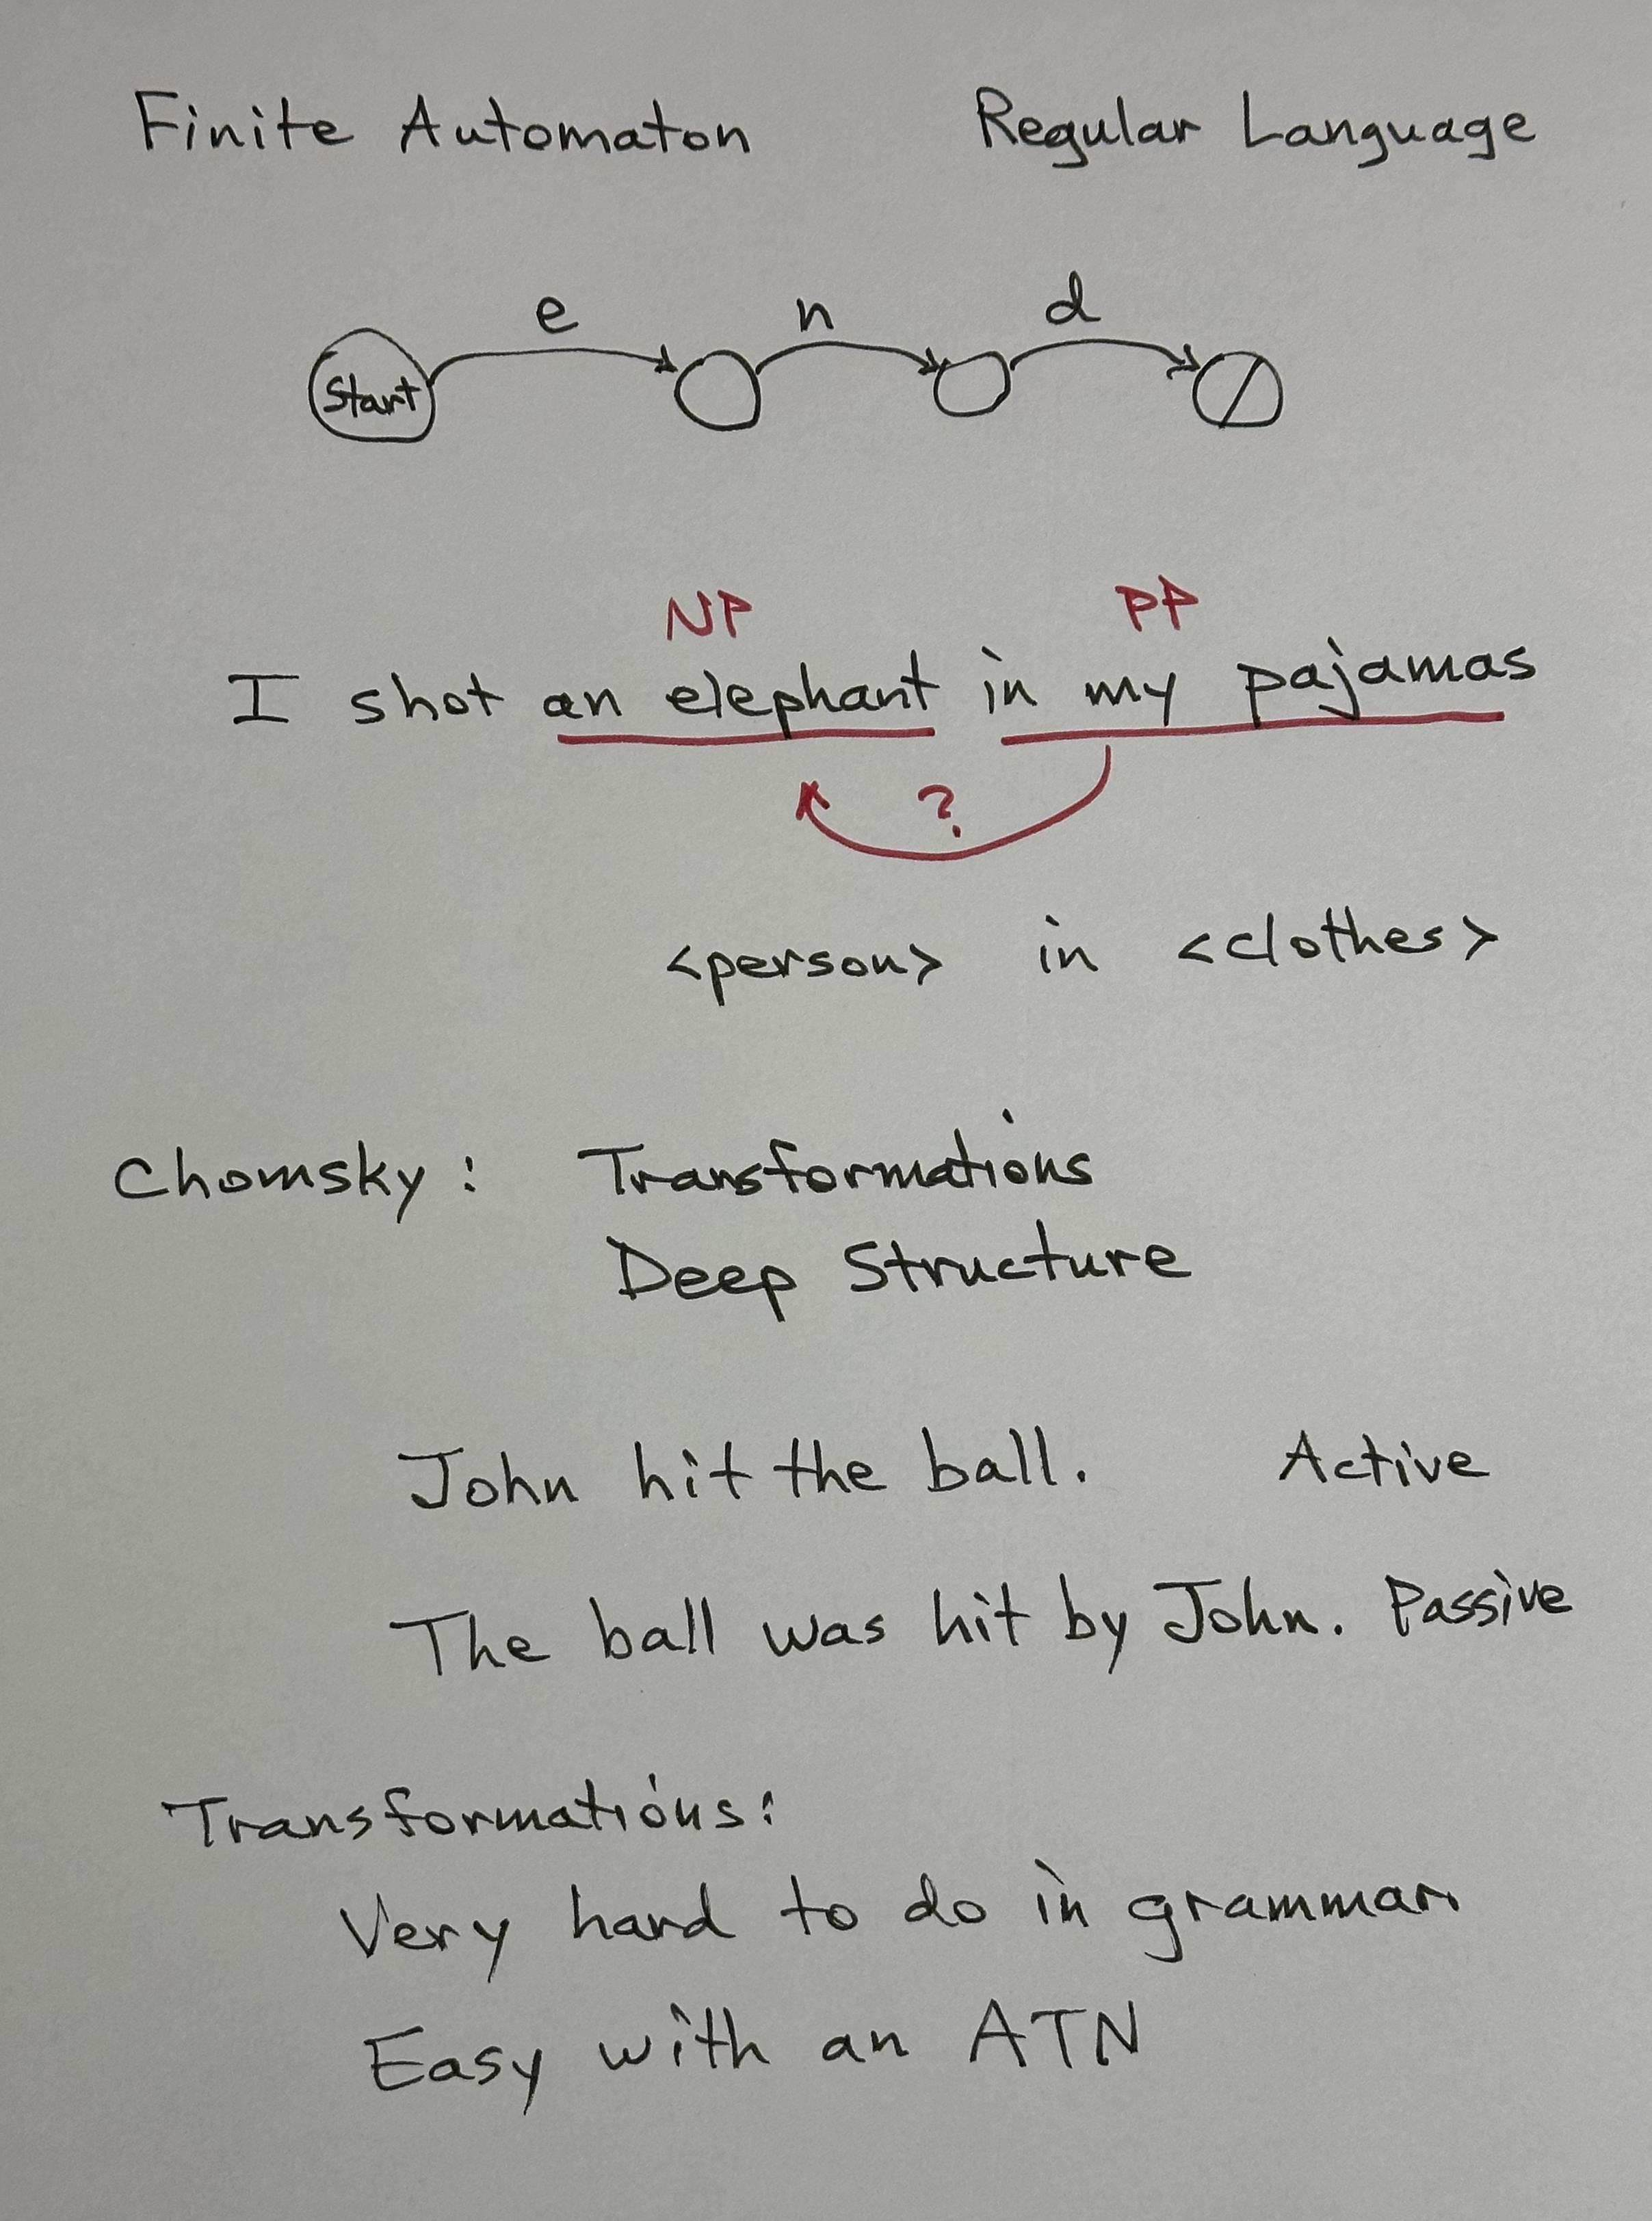 Finite Automaton Regular Language
e n d
Start
NP PP
I shot an elephant in my pajamas
?
<person> in <clothes>
Chomsky: Transformations
Deep Structure
John hit the ball. Active
The ball was hit by John. Passive
Transformations:
Very hard to do in grammar
Easy with an ATN